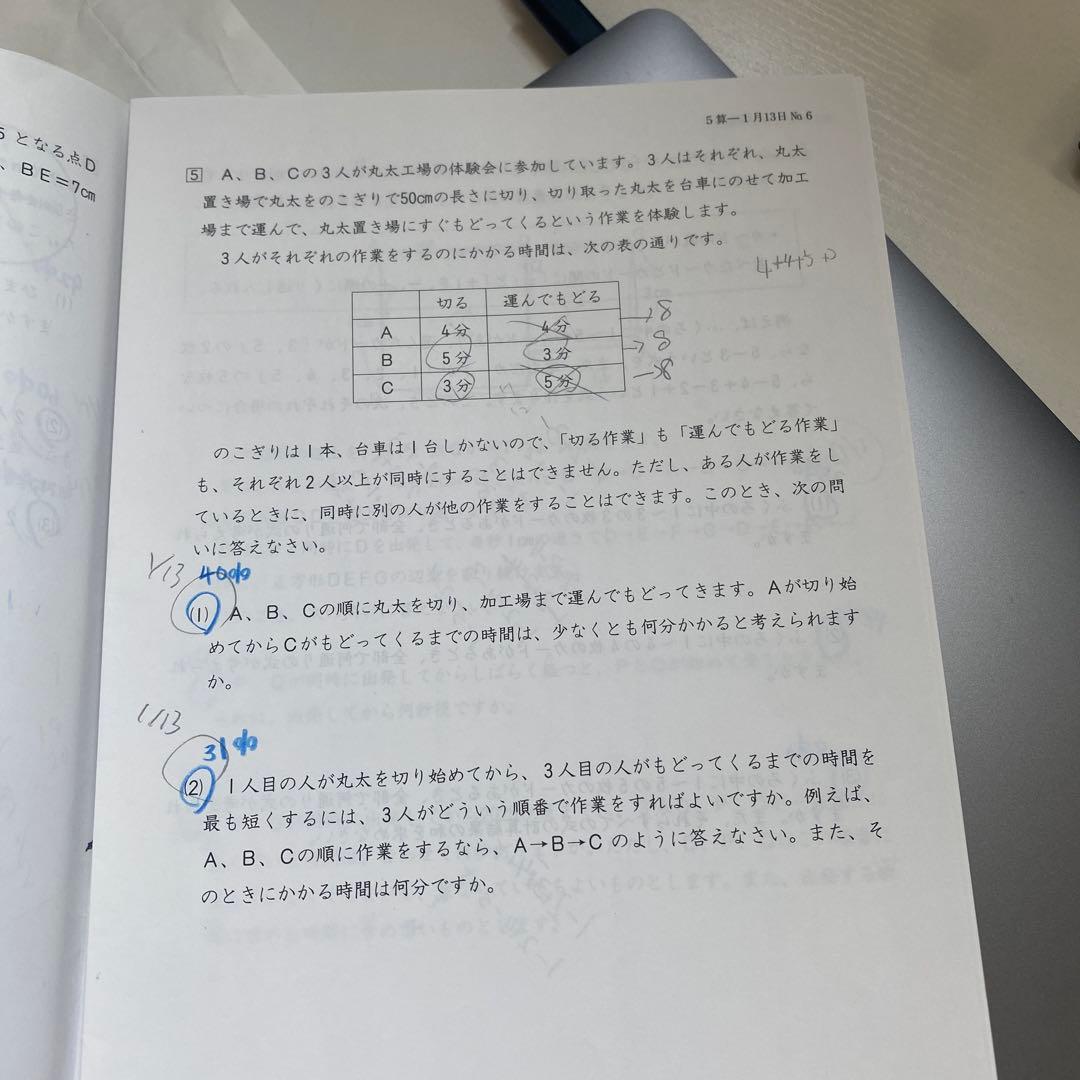 ５となる点Ｄ
、ＢＥ＝7cm
５算―１月13日 №6
5 Ａ、Ｂ、Ｃの３人が丸太工場の体験会に参加しています。３人はそれぞれ、丸太
置き場で丸太をのこぎりで50cmの長さに切り、切り取った丸太を台車にのせて加工
場まで運んで、丸太置き場にすぐもどってくるという作業を体験します。
３人がそれぞれの作業をするのにかかる時間は、次の表の通りです。
4+4+5+
切る 運んでもどる
Ａ 4分 4分 →8
Ｂ 5分 3分 →8
Ｃ 3分 5分 →8
のこぎりは１本、台車は１台しかないので、「切る作業」も「運んでもどる作業」
も、それぞれ２人以上が同時にすることはできません。ただし、ある人が作業をし
ているときに、同時に別の人が他の作業をすることはできます。このとき、次の問
いに答えなさい。
1/13
40%
(1) Ａ、Ｂ、Ｃの順に丸太を切り、加工場まで運んでもどってきます。Ａが切り始
めてからＣがもどってくるまでの時間は、少なくとも何分かかると考えられます
か。
1/13
31%
(2) １人目の人が丸太を切り始めてから、３人目の人がもどってくるまでの時間を
最も短くするには、３人がどういう順番で作業をすればよいですか。例えば、
Ａ、Ｂ、Ｃの順に作業をするなら、Ａ→Ｂ→Ｃ のように答えなさい。また、そ
のときにかかる時間は何分ですか。